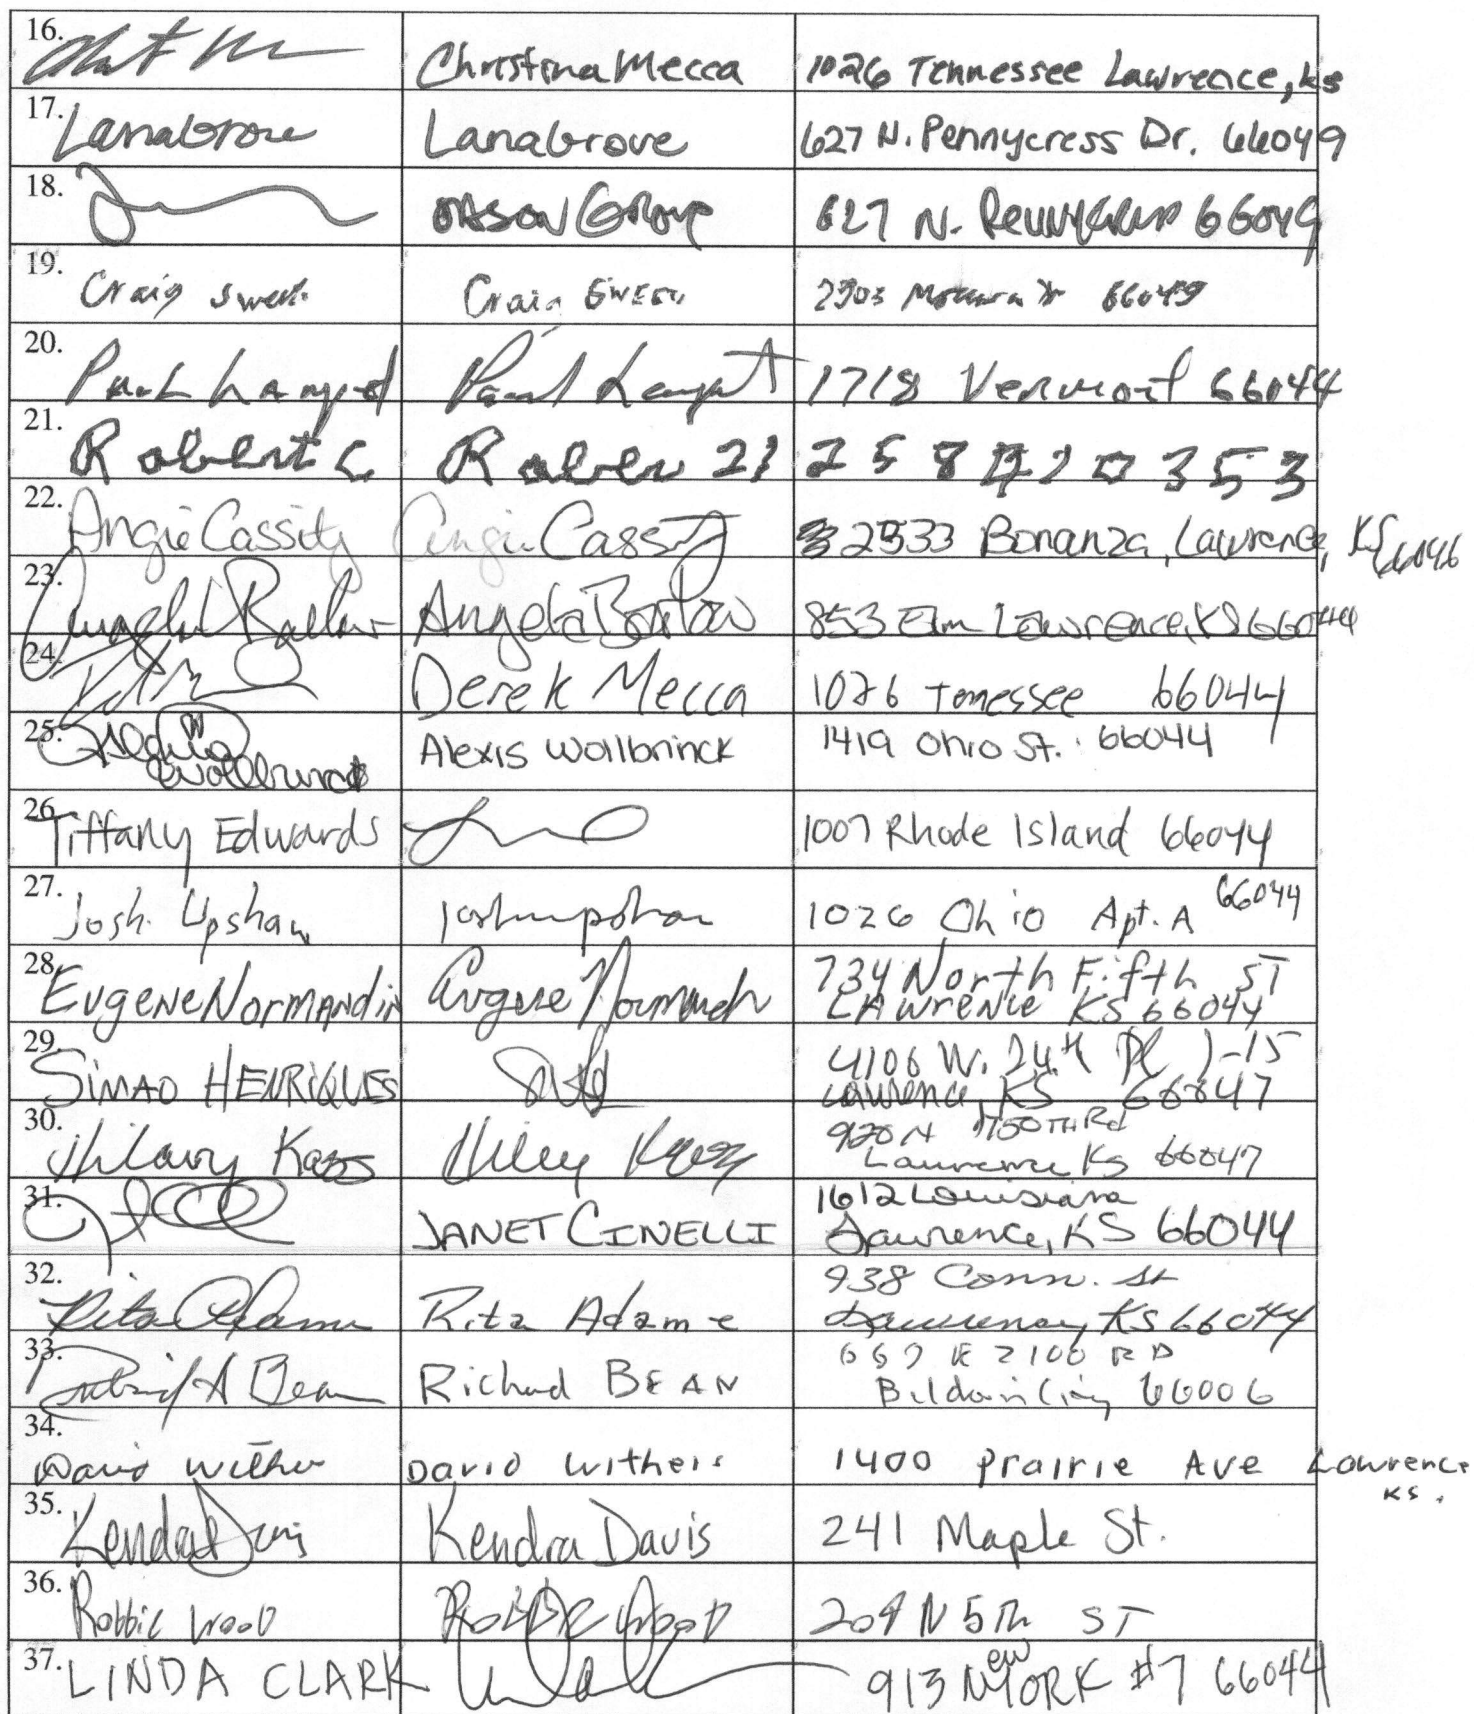 16. Christina Mecca 1026 Tennessee Lawrence, ks
17. Lana Grove Lana Grove 627 N. Pennycress Dr. 66049
18. Grove 627 N. 66049
19. Craig Craig 66049
20. Paul 1718 Vermont 66044
21. Robert C
22. Angie Cassity Angie Cassity 2533 Bonanza, Lawrence, KS 66046
23. Angela Barlow 853 Elm Lawrence, KS 66044
24. Derek Mecca 1026 Tennessee 66044
25. Alexis Wollbrinck 1419 Ohio St. 66044
26. Tiffany Edwards 1007 Rhode Island 66044
27. Josh Upshaw 1026 Ohio Apt. A 66044
28. Eugene Normandin Eugene Normandin 734 North Fifth ST
Lawrence KS 66044
29. SIMAO HENRIQUES 4106 W. 24th Pl J-15
Lawrence, KS 66047
30. Hilary Kass 920 N 1750TH Rd
Lawrence KS 66047
31. JANET CINELLI 1612 Louisiana
Lawrence, KS 66044
32. Rita Adame Rita Adame 938 Conn. St
Lawrence, KS 66044
33. Richard BEAN E 2100 RD
Baldwin City 66006
34. David Withers David Withers 1400 Prairie Ave Lawrence
KS.
35. Kendra Davis Kendra Davis 241 Maple St.
36. Robbie Wood Robbie Wood 209 N 5th ST
37. LINDA CLARK 913 New YORK #7 66044